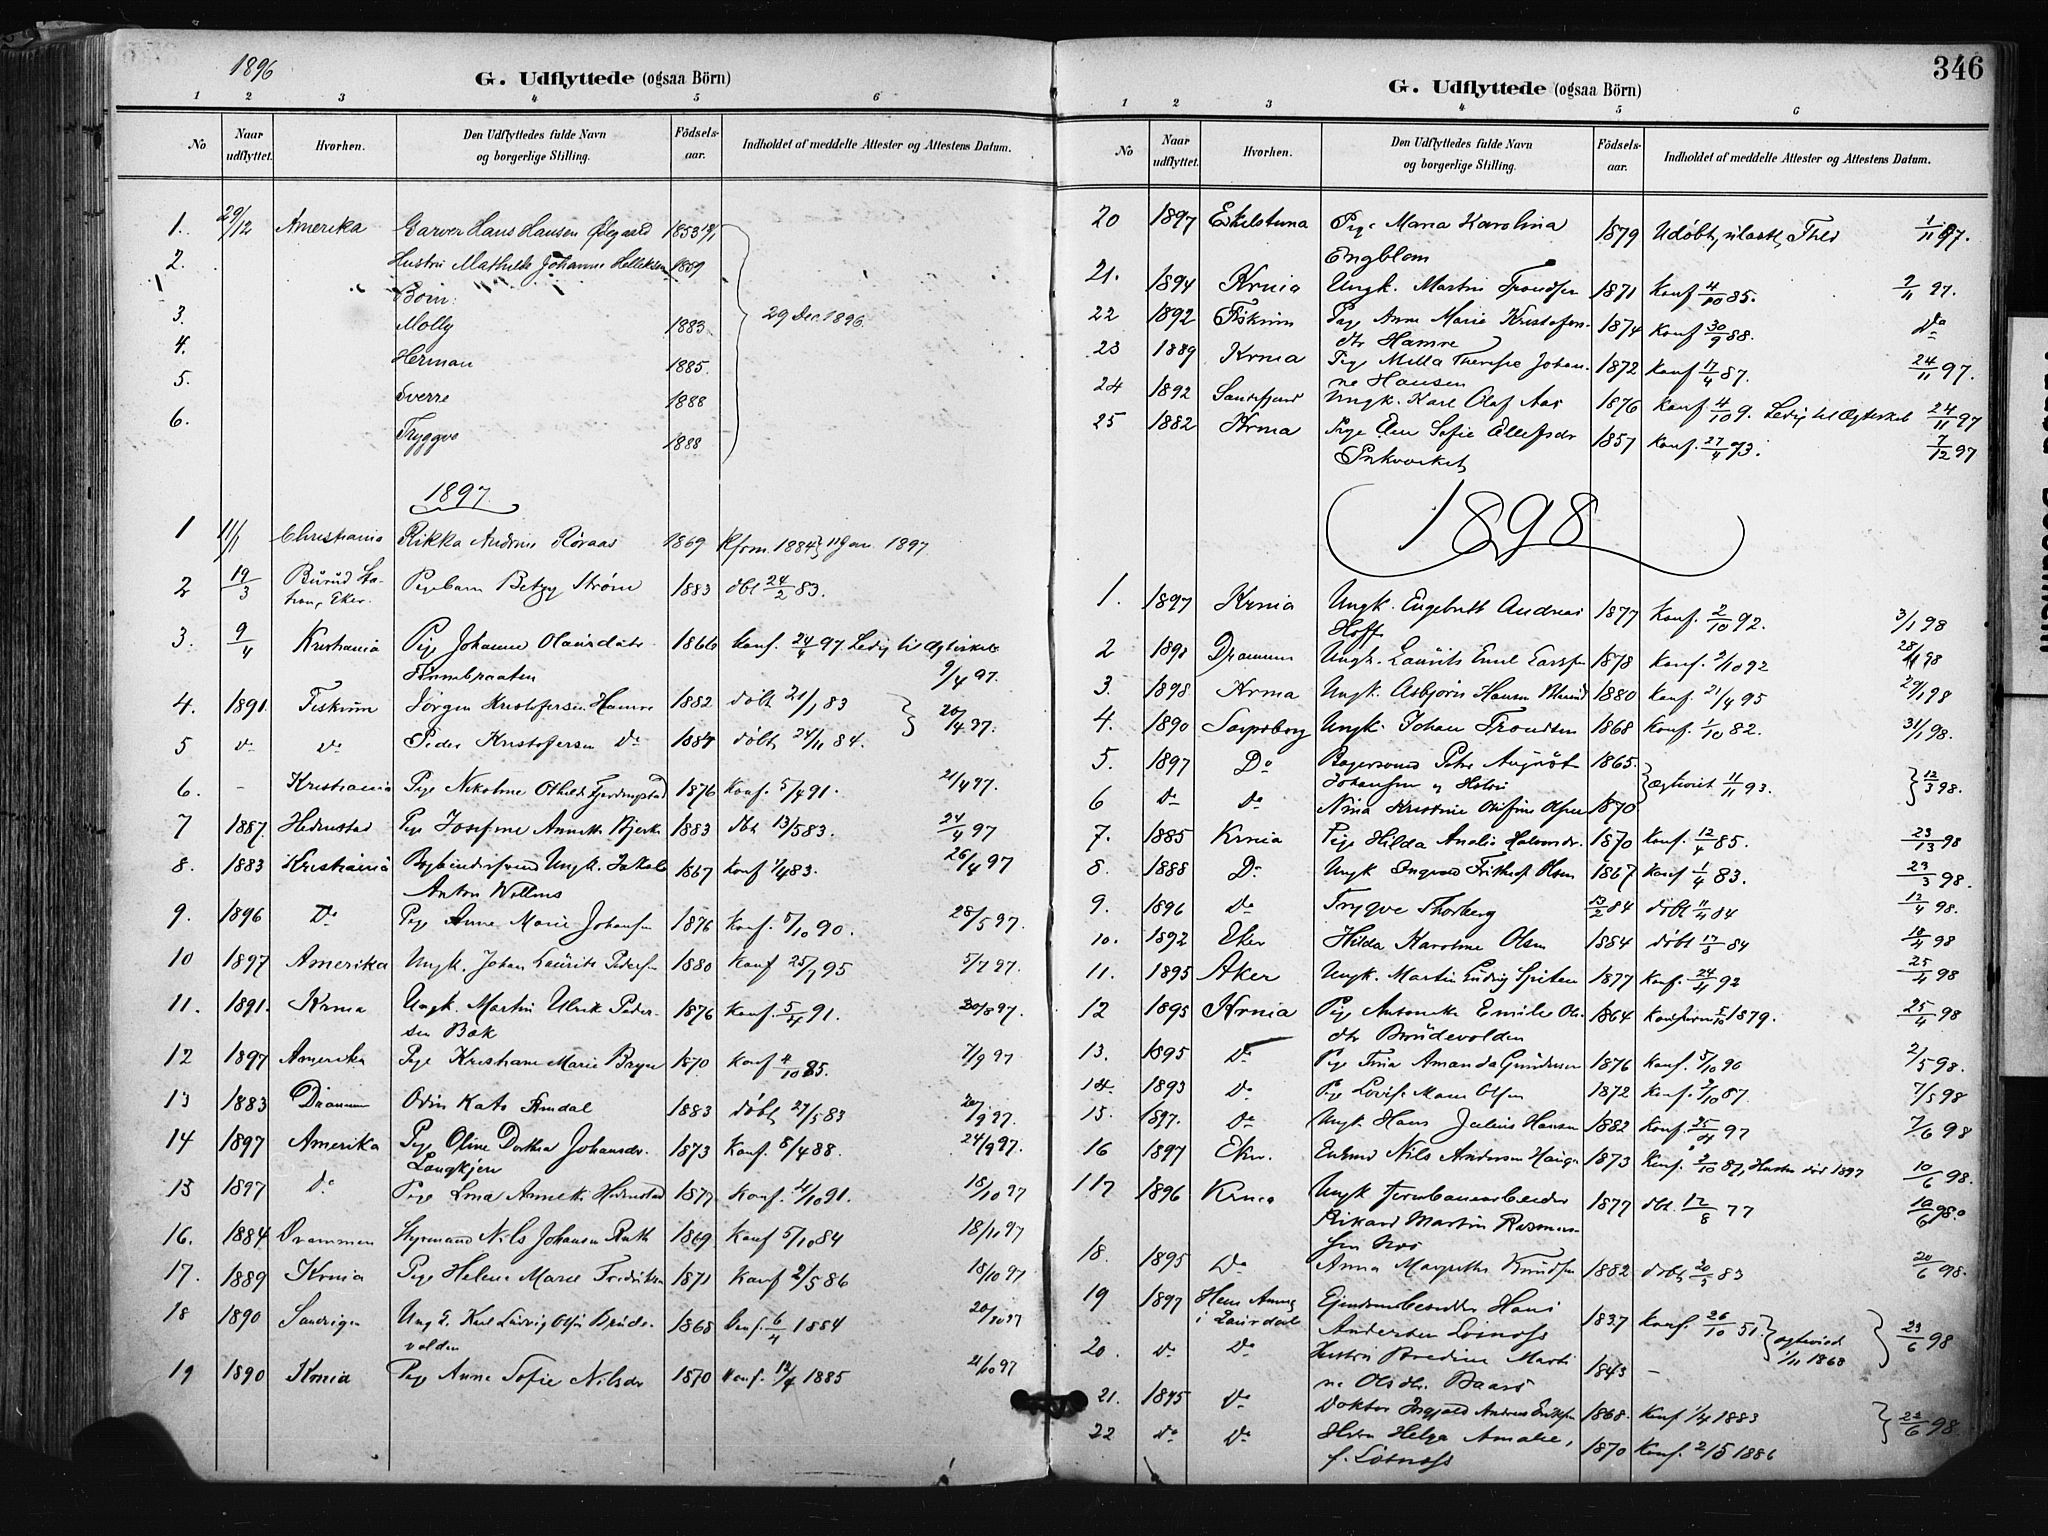 1896
G. Udflyttede (ogsaa Börn)
1 2 3 4 5 6
No
Naar udflyttet.
Hvorhen.
Den Udflyttedes fulde Navn og borgerlige Stilling.
Födsels-aar.
Indholdet af meddelte Attester og Attestens Datum.
1. 29/12 Amerika Garver Hans Hansen Ødegaard 1853
2. Hustru Mathilde Johanne Helliksen 1859
Børn:
3. Molly 1883
29 Dec. 1896.
4. Herman 1885.
5. Sverre 1888
6. Tryggve 1888
1897
1 11/1 Christiania Rikka Røraas 1869 Kfrm. 1884 } 11 Jan. 1897
2 19/3 Burud Sta- Pigebarn Betzy Strøm 1883 døbt 24/2 83.
tion, Eker.
3. 9/4 Kristiania Pige Johanne Olausdatr. 1866 Konf. 24/4 97. Ledig til Ægteskab
9/4 97.
4. 1891 Fiskum Jørgen Kristofersen Hamre 1882 døbt 21/1 83 20/4 97.
5 do do Peder Kristofersen Do døbt 24/11 84.
6. - Kristiania Pige Nikoline Othilde 1876 Konf. 5/4 91. 21/4 97.
7 1887. Hedenstad Pige Josefine Annette Bjerke 1883 dbt 13/5 83. 24/4 97
8. 1883 Kristiania Ungk. Jakob 1867 Konf 1/4 83. 26/4 97
Anton
9. 1896 Do Pige Anne Marie Johansen 1876 Konf. 5/10 90. 28/5 97.
10 1897 Amerika Ungk. Johan Laurits Pedersen 1880 Konf 95 5/7 97.
11. 1891. Krnia Ungk. Martin Ulrik Peder- 1876 Konf. 5/4 91. 20/8 97.
sen Bøk
12 1897 Amerika Pige Kristiane Marie 1870 Konf 4/10 85. 7/9 97
13 1883 Drammen Odin Kato 1883 døbt 27/5 83
14 1897 Amerika Pige Oline Dorthea Johansdr. 1873 Konf. 8/4 88. 24/9 97.
Langkjern
15 1897 Do Pige Annette Hedenstad 1877 Konf. 91. 18/10 97
16. 1884 Drammen Styrmand Nils Johansen Ruth 1869 Konf 5/10 84 18/11 97
17. 1889 Krnia Pige Helene Marie Fredriksen 1871 Konf 2/5 86 18/10 97
18 1890 Ung K. Karl Ludvig Olsen Brude- 1868 Konf. 6/4 1884
volden
19 1890 Krnia Pige Anne Sofie Nilsdr 1870 Konf. 12/4 1885 21/10 97
346
G. Udflyttede (ogsaa Börn)
1 2 3 4 5 6
No
Naar udflyttet.
Hvorhen.
Den Udflyttedes fulde Navn og borgerlige Stilling.
Födsels-aar.
Indholdet af meddelte Attester og Attestens Datum.
20 1897 Eskilstuna Pige Maria Karolina 1879 1/11 97.
Engblom
21. 1894 Krnia Ungk. Martin Trondsen 1871 Konf 4/10 85. 2/11 97.
22 1892 Fiskum Pige Anne Marie Kristofers- 1874 Konf 30/9 88. Do
dtr Hamre
23 1889 Krnia Pige Milla Therese Johan- 1872 Konf 17/4 87. 24/11 97.
ne Hansen
24 1892 Sandefjord Ungk. Karl Olaf Aas 1876 Konf 4/10 9. Ledig til Ægteskab 24/11 97
25 1882 Krnia Pige Sofie Ellefsdr 1857 Konf. 27/4 73. 7/12 97
1898
1. 1897 Krnia Ungk. Engebrett Andreas 1877 Konf. 2/10 92. 3/1 98
Hoff
2 1898 Drammen Ungk. Laurits Emil 1878 Konf. 2/10 92
3. 1898 Krnia Ungk. Asbjørn Hansen 1880 Konf. 21/4 95 29/1 98
4. 1890 Sarpsborg Ungk. Johan Trondsen 1868 Konf. 1/10 82. 31/1 98.
5. 1897 Do Bagersvend Peter August 1865.
Johansen og Hstru ægteviet 11/11 93. 12/3 98.
6 Do Do Nina Kristine Olsen 1870
7. 1885 Krnia Pige Hilda Amalie Halvorsdr. 1870 Konf. 12/4 85.
8. 1888 Do Ungk Ingvald Frithjof Olsen 1867 Konf 1/4 83. 23/3 98.
9. 1896 Do Trygve Thorberg 13/2 84 døbt 11/4 84 12/4 98.
10. 1892 Eker Hilda Karoline Olsen 1884 døbt 17/3 84 98
11. 1895 Aker Ungk. Martin Ludvig Spiten 1877 Konf. 24/4 92 25/4 98
12 1895 Krnia Pige Antonette Emilie Ols- 1864 Konfirm 5/10 1879. 25/4 98
dtr Brudevolden
13. 1895 Do Pige Tina Amanda Gundersen 1876 Konf. 5/10 90 2/5 98.
14. 1893 Do Pige Lovise Marie Olsen 1872 Konf. 2/10 87. 7/5 98
15. 1897. Do Ungk. Hans Julius Hansen 1882 Konf. 25/4 97 7/6 98
16 1897 Eker. Enkemd Nils Andersen Hauge 1873 Konf. 2/10 87, Hustru død 1897 10/6 98.
17 1896 Krnia Ungk Jernbanearbeider 1877 dbt. 12/8 77 10/6 98.
Rikard Martin Rasmus-
sen
18. 1895 Do Anna Margrethe Knudsen 1882 døbt 83 20/6 98.
19 1897 Eiendomsbesidder Hans
i Laurdal Andersen 1837 Konf. 26/10 51. } ægteviet 23/6 98
20. Do Do Hustru Bredine Marti- 1843 - 1/11 1868
ne Olsdtr. Baas
21. 1895 Do Doktor Ingjald Andreas Eriksen 1868. Konf 1/4 1883
22 Do Do Hstru Helga Amalie, 1870 Konf. 2/5 1886 23/6 98.